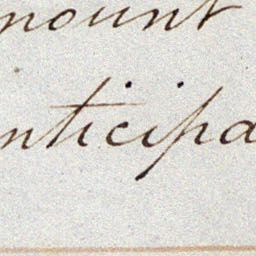 mount
nticipa